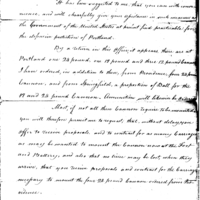 It has been suggested to me that you can with convenience, and will cheerfully give your assistance in such measures as
the Government of the United States at present find practicable for
the defensive protection of Portland.
By a return in this office, it appears there are at
Portland one 24 pound. one 18 pound and three 12 pound Cannon
I have ordered, in addition to them from Providence, four 24 pound
Cannon, and from Springfield, a proportion of Ball for the
18 and 24 pound Cannon, Ammunition will likewise be
Most, if not all these Cannon Carriages to be mounted
you will therefore permit me to request, that without delay you
offer to receive proposals, and to contract for as many Carriages
as may be wanted to mount the Cannon now at the Fort
and Battery; and also that no time may be lost, when they
arrive, that you receive proposals and contract for the Carriages
necessary to mount the four 24 pound Cannon ordered from Providence.